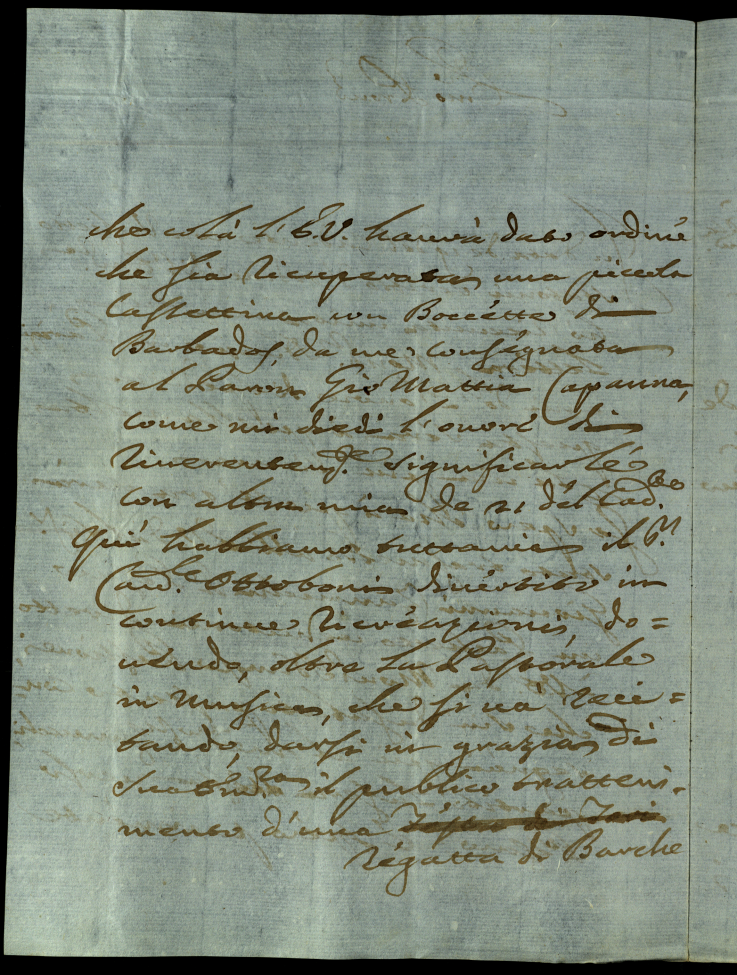 che colà l'E.V. havrà dato ordine
che sia ricuperata una picciola
Cassettina con Boccette di
Barbados, da me consegnata
al Paron Gio Mattia Capanna,
come mi diedi l'onore di
riverentem.te significarle
con altra mia de 21 del cad.to
Qui habbiamo tuttavia il S.r
Card.le Ottoboni divertito in
continue ricreazioni, do=
vendo, oltre la Pastorale
in Musica, che si và reci=
tando, darsi in grazia di
Sua Em.za il publico tratteni=
mento d'una
regatta di Barche